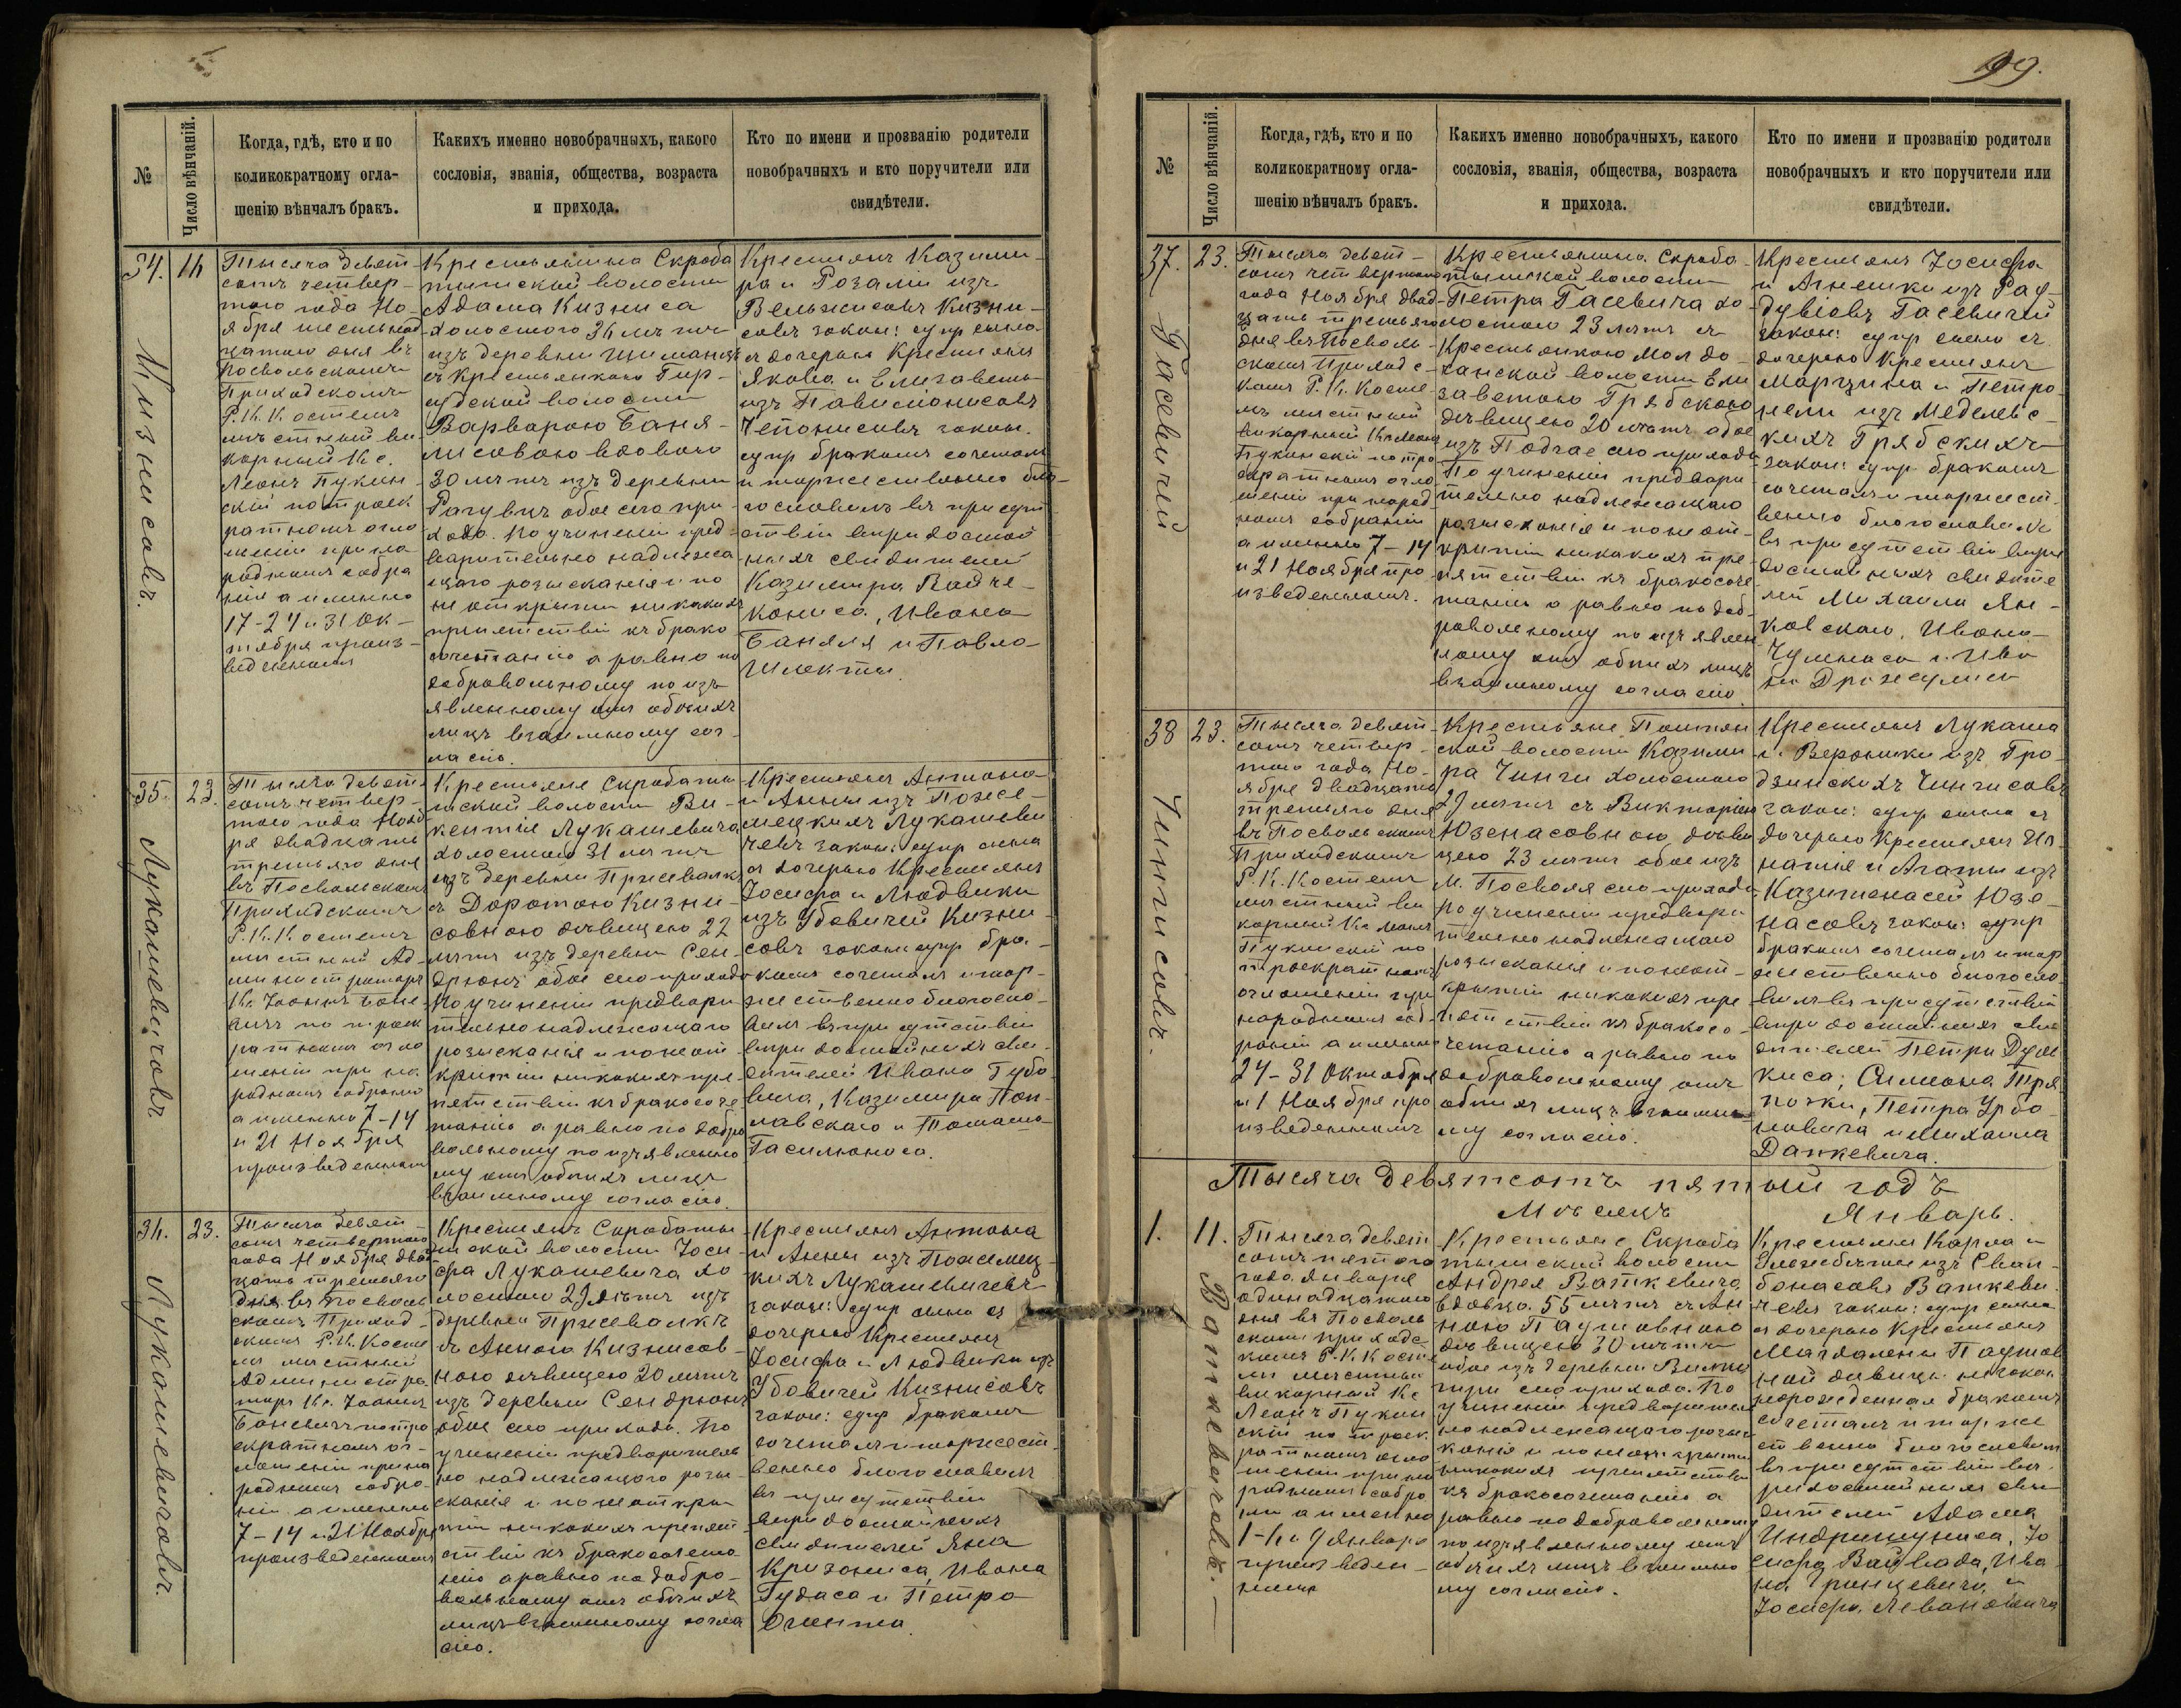 99.
№
Число вѣнчаній.
Когда, гдѣ, кто и по
коликократному огла-
шенію вѣнчалъ бракъ.
Какихъ именно новобрачныхъ, какого
сословія, званія, общества, возраста
и прихода.
Кто по имени и прозванію родители
новобрачныхъ и кто поручители или
свидѣтели.
34.
16
Кизнисовъ.
Тысяча девят-
сотъ четвер-
таго года Но-
ября шестьнад
цатаго дня въ
Посвольскомъ
Приходскомъ
Р. К. Костелѣ
мѣстный ви
карный Кс.
Леонъ Пукин-
скій по троек
ратномъ огла
шеніи при на
родномъ собра
ніи а именно
17-24 и 31 Ок-
тября произ-
веденномъ
Крестьянина Скроба
тышской волости
Адама Кизниса
холостого 36 лѣтъ
изъ деревни Шиманцъ
съ Крестьянкою Гир-
ской волости
Варварою Баня-
лисовою вдовою
30 лѣтъ изъ деревни
Рагувцъ обое сего при-
хода. По учиненіи пред-
варительно надлежа
щаго розысканія и по
не открытіи никакихъ
препятствій къ брако
сочетанію а равно по
добровольному по изъ
явленному отъ обоихъ
лицъ взаимному сог-
ласію.
Крестьянъ Казими-
ра и Розаліи изъ
Вельжисовъ Кизни-
совъ закон: супр сына
съ дочерью Крестьянъ
Якова и Елизаветы
изъ Павилонисовъ
Чепонисовъ закон.
супр бракомъ сочеталъ
и торжественно бла-
гословилъ въ присут
ствіи вѣридостой
ныхъ свидѣтелей
Казимира Вайче-
кониса, Ивана
Баняля и Павла
Шлекты.
35.
23.
Лукашевичовъ
Тысяча девят
сотъ четвер-
таго года Нояб
ря двадцать
третьяго дня
въ Посвольскомъ
Приходскомъ
Р. К. Костелѣ
мѣстный Ад-
министраторъ
Кс. Іоаннъ Бане-
вичъ по троек
ратномъ огла
шеніи при на
родномъ собраніи
а именно 7-14
и 21 Ноября
произведенномъ
Крестьяне Скробаты
шской волости Ви-
кентія Лукашевича
холостого 31 лѣтъ
изъ деревни Пржевалкъ
съ Доротою Кизни-
совною дѣвицею 22
лѣтъ изъ деревни Сен-
дрюнъ обое сего прихода
По учиненіи предвари
тельно надлежащаго
розысканія и по неот
крытіи никакихъ пре-
пятствій къ бракосоче
танію а равно по добро
вольному по изъявленно
му отъ обоихъ лицъ
взаимному согласію.
Крестьянъ Антона
и Анны изъ Пожe-
мецкихъ Лукашеви
чевъ закон: супр сына
съ дочерью Крестьянъ
Іосифа и Людвики
изъ Убовичей Кизни-
совъ закон: супр бра-
комъ сочеталъ и тор-
жественно благосло-
вилъ въ присутствіи
вѣридостойныхъ сви-
дѣтелей Ивана Губо-
вича, Казимира Поп-
лавскаго и Томаша
Гасилюноса.
36.
23.
Лукашевичовъ.
Тысяча девят-
сотъ четвертаго
года Ноября двад
цать третьяго
дня въ Посволь
скомъ Приход-
скомъ Р. К. Косте
лѣ мѣстный
Администра
торъ Кс. Іоаннъ
Баневичъ по тро
екратномъ ог-
лашеніи при на
родномъ собра-
ніи а именно
7-14 и 21 Ноября
произведенномъ
Крестьянъ Скробаты
шской волости Іоси-
фа Лукашевича хо
лостого 29 лѣтъ изъ
деревни Пржевалкъ
съ Анною Кизнисов-
ною дѣвицею 20 лѣтъ
изъ деревни Сендрюнъ
обое сего прихода. По
учиненіи предваритель
но надлежащаго розы-
сканія и по неоткры
тіи никакихъ препят-
ствій къ бракосочета
нію а равно по добро-
вольному отъ обоихъ
лицъ взаимному согла
сію.
Крестьянъ Антона
и Анны изъ Пожемец-
кихъ Лукашевичевъ
закон: супр сына съ
дочерью Крестьянъ
Іосифа и Людвики изъ
Убовичей Кизнисовъ
закон: супр бракомъ
сочеталъ и торжест-
венно благословилъ
въ присутствіи
вѣридостойныхъ
свидѣтелей Яна
Кризониса, Ивана
Гудаса и Петра
№
Число вѣнчаній.
Когда, гдѣ, кто и по
коликократному огла-
шенію вѣнчалъ бракъ.
Какихъ именно новобрачныхъ, какого
сословія, званія, общества, возраста
и прихода.
Кто по имени и прозванію родители
новобрачныхъ и кто поручители или
свидѣтели.
37.
23.
Гасевичей
Тысяча девят-
сотъ четвертаго
года Ноября двад-
цать третьяго
дня въ Посволь-
скомъ Приходс-
комъ Р. К. Косте
лѣ мѣстный
викарный Кс. Леонъ
Пукинскій по тро
екратномъ огла
шеніи при народ-
номъ собраніи
а именно 7-14
и 21 Ноября про
изведенномъ.
Крестьянина Скроба-
тышской волости
Петра Гасевича хо
лостого 23 лѣтъ съ
Крестьянкою Мол до
ханской волости Ели
заветою Грябскою
дѣвицею 20 лѣтъ обое
изъ Подгае сего прихода
По учиненіи предвари
тельно надлежащаго
розысканія и по неот-
крытіи никакихъ пре
пятствій къ бракосоче
танію а равно по доб-
ровольному по изъявлен
ному отъ обоихъ лицъ
взаимному согласію
Крестьянъ Іосифа
и Агнешки изъ Рад-
дувіовъ Гасевичей
закон: супр сына съ
дочерью Крестьянъ
Марцина и Петро
нели изъ Меделевс-
кихъ Грябскихъ
закон: супр бракомъ
сочеталъ и торжест
венно благословилъ
въ присутствіи вѣри
достойныхъ свидѣте
лей Михаила Ян-
ковскаго, Ивана
Чумнаса и Ива
на Дрожулиса
38
23.
Чингисовъ.
Тысяча девят
сотъ четвер-
таго года Но-
ября двадцать
третьяго дня
въ Посвольскомъ
Приходскомъ
Р. К. Костелѣ
мѣстный ви
карный Кс. Леонъ
Пукинскій по
троекратномъ
оглашеніи при
народномъ соб-
раніи а именно
24-31 Октября
и 1 Ноября про
изведенномъ
Крестьяне Поитон
ской волости Казими
ра Чинги холостого
29 лѣтъ съ Викторіею
Юзенасовною дѣви
цею 23 лѣтъ обое изъ
М. Посволя сего прихода
По учиненіи предвари
тельно надлежащаго
розысканія и по неот-
крытіи никакихъ пре
пятствій къ бракосо-
четанію а равно по
добровольному отъ
обоихъ лицъ взаимно
му согласію.
Крестьянъ Лукаша
и Вероники изъ Гро-
дзинскихъ Чингисовъ
закон: супр сына съ
дочерью Крестьянъ Иг
натія и Агаты изъ
Казименасей Юзе-
насовъ закон: супр
бракомъ сочеталъ и тор
жественно благосло
вилъ въ присутствіи
вѣридостойныхъ сви
дѣтелей Петра Дум
киса, Симона Тря
почки, Петра Урбо
новича и Михаила
Данкевича.
Тысяча девятсотъ пятый годъ
Мѣсяцъ Январь.
1.
11.
Ваткевичовъ.
Тысяча девят
сотъ пятаго
года Января
одинадцатаго
дня въ Посволь
скомъ приходс-
комъ Р. К. Косте
лѣ мѣстный
викарный Кс
Леонъ Пукин
скій по троек
ратномъ огла
шеніи при на
родномъ собра
ніи а именно
1-6 и 9 Января
произведен-
номъ
Крестьяне Скроба
тышской волости
Андрея Ваткевича
вдовца 55 лѣтъ съ Ан
ною Паутовною
дѣвицею 30 лѣтъ
обое изъ деревни
сего прихода. По
учиненіи предварител
но надлежащаго розыс
канія и по неоткрытіи
никакихъ препятствій
къ бракосочетанію а
равно по добровольному
по изъявленному отъ
обоихъ лицъ взаимно
му согласію.
Крестьянъ Карла и
Елизабеты изъ Сван-
бонасовъ Ваткеви
чевъ закон: супр сына
съ дочерью Крестьянъ
Магдалены Паутов
ной дѣвицы незакон
норожденная бракомъ
сочеталъ и торже
ственно благословилъ
въ присутствіи вѣ
ридостойныхъ сви
дѣтелей Адама
Индришуниса, Іо
сифа Вайвада, Ива
на Гринцевича и
Іосифа Левановича